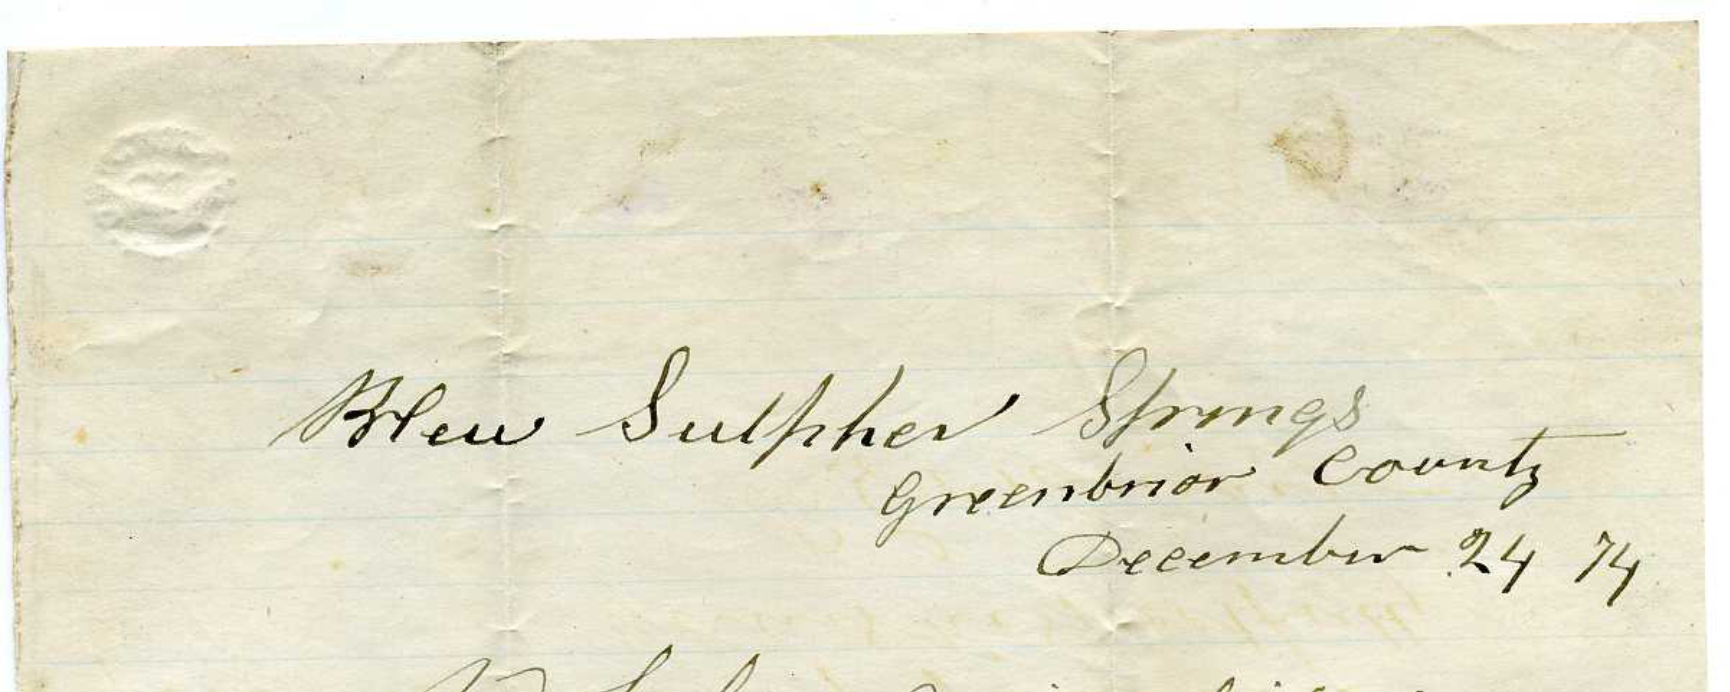 Bleu Sulpher Springs
Greenbrior County
December 24 74